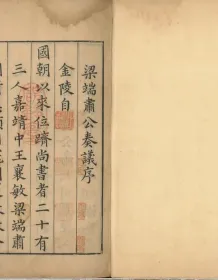 梁端肅公奏議序
金陵自
國朝以來位躋尚書者二十有
三人嘉靖中王襄敏梁端肅